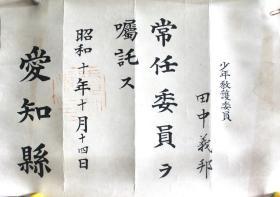 少年教護委員
田中義邦
常任委員ヲ
囑託ス
昭和十年十月十四日
愛知縣